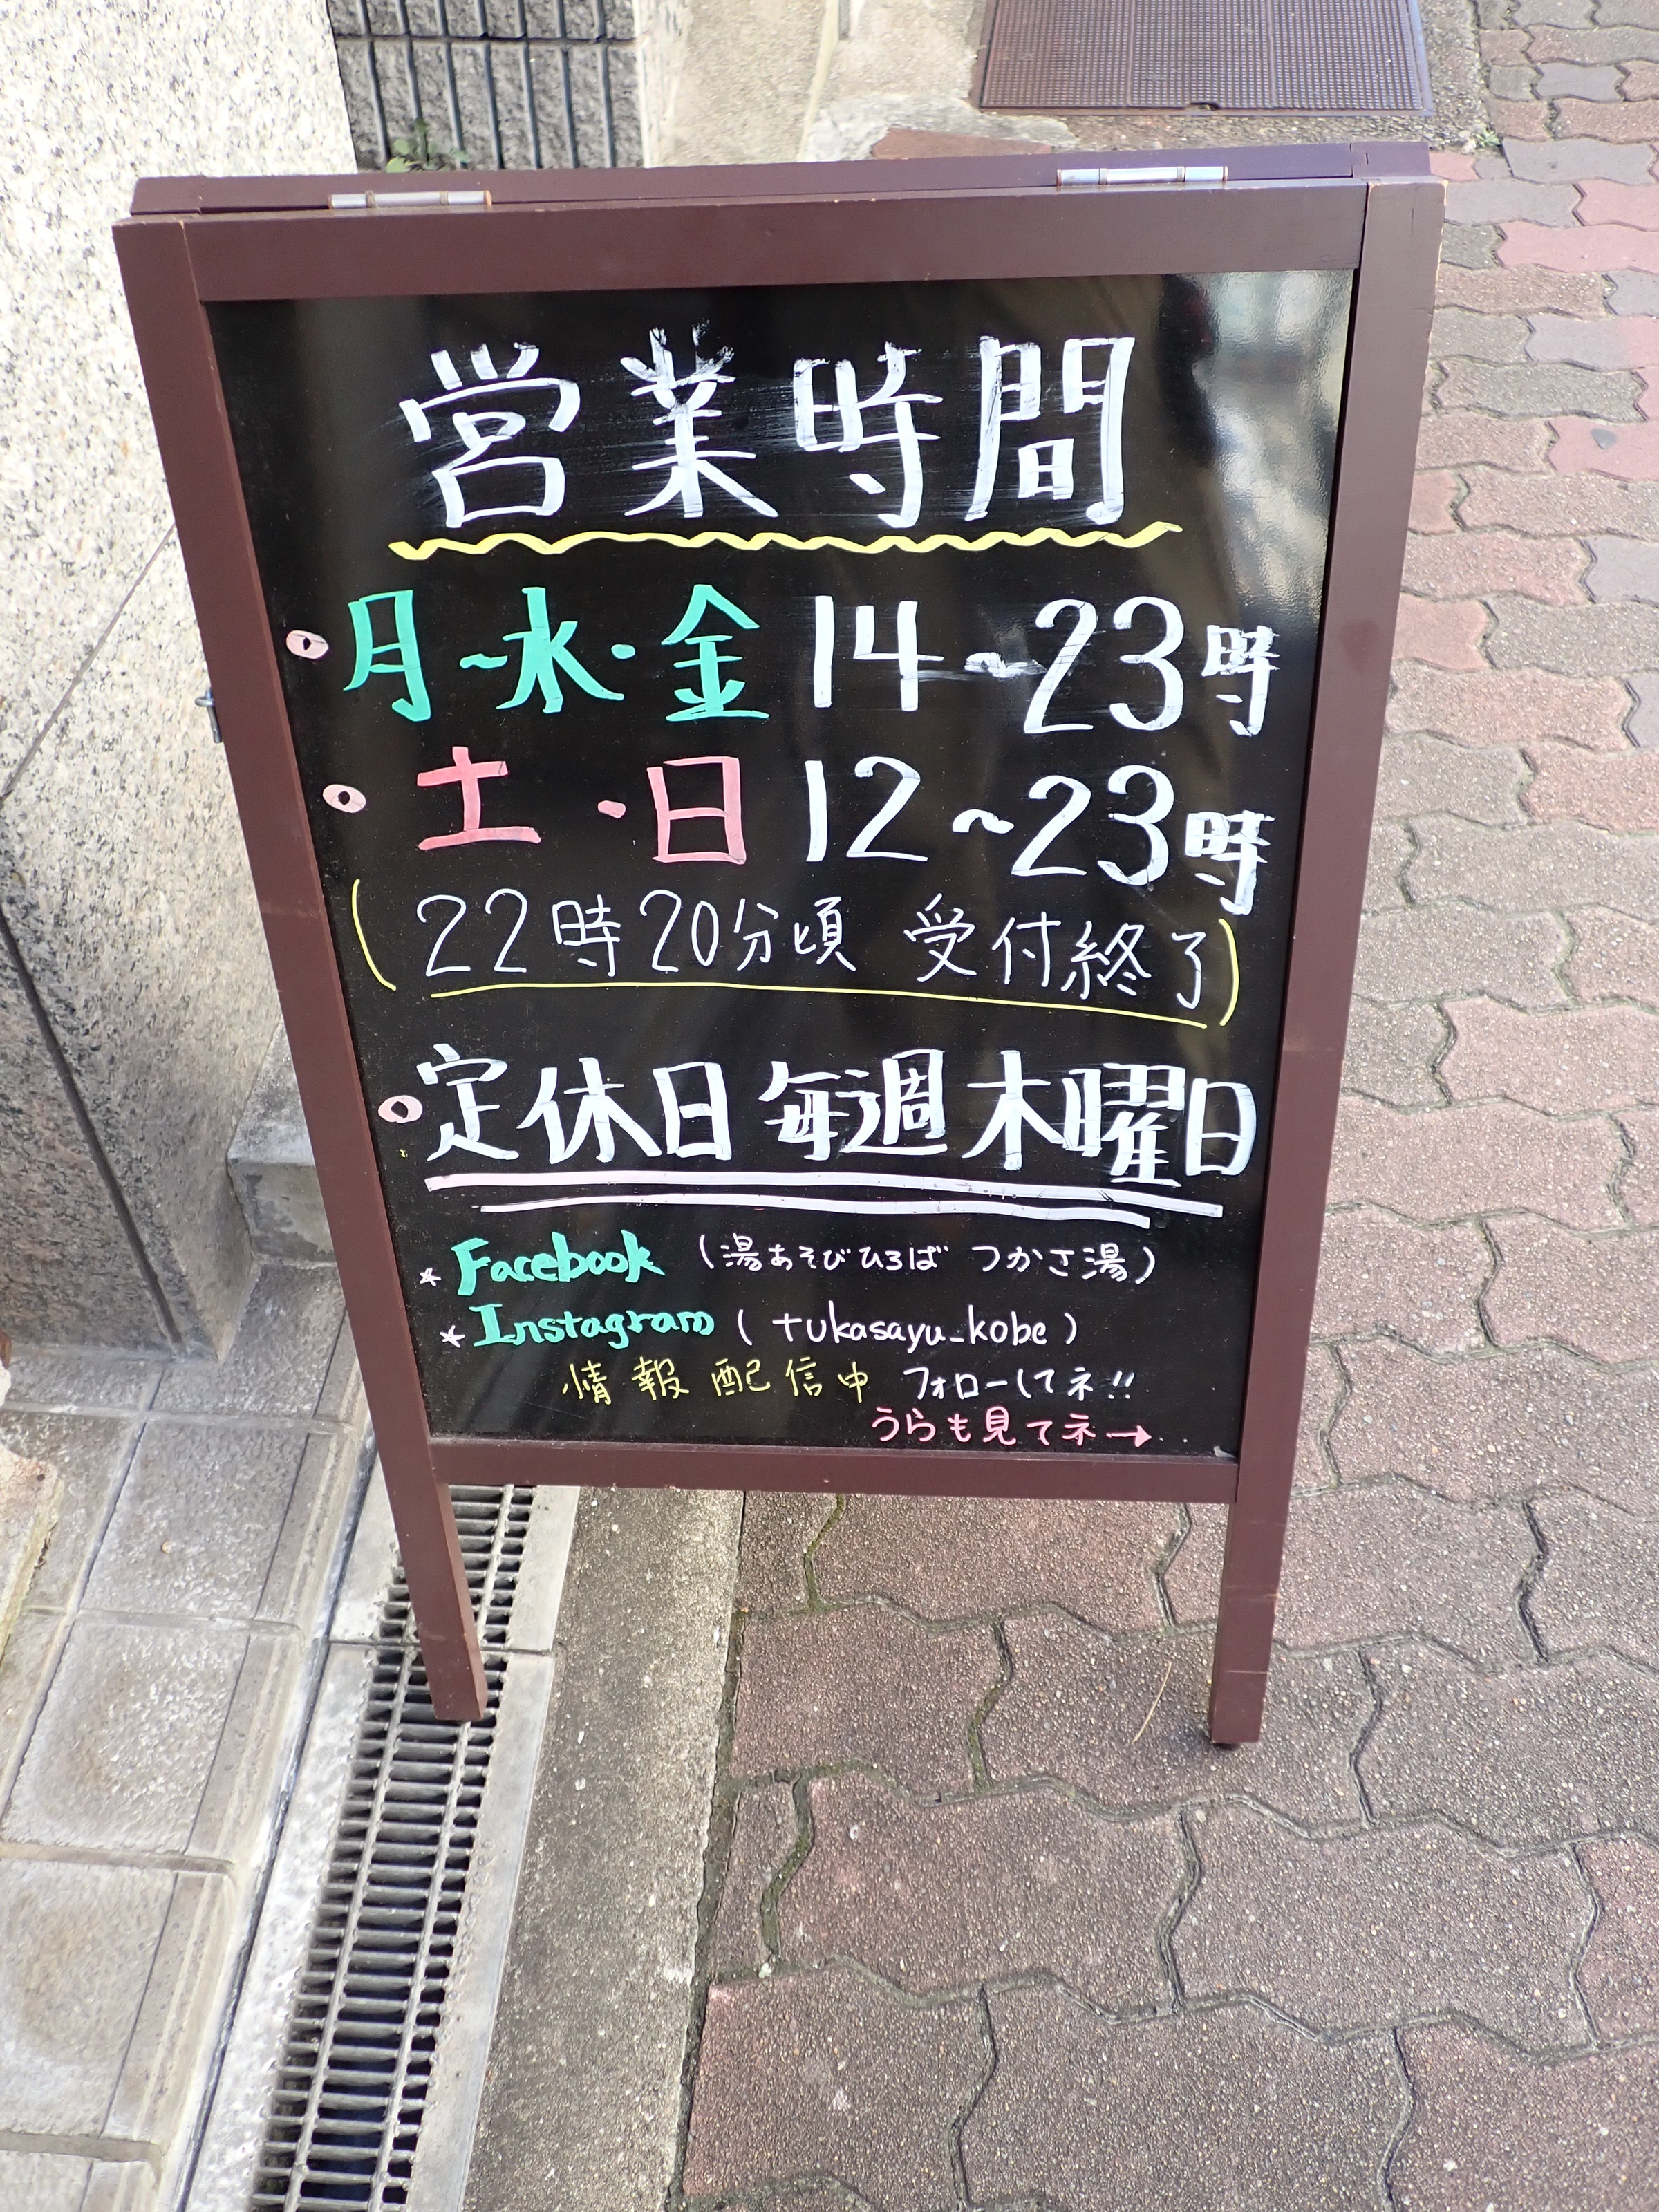 営業時間
月~水・金 14~23時
土・日 12~23時
(22時20分頃 受付終了)
定休日毎週木曜日
* Facebook (湯あそびひろば つかさ湯)
* Instagram (tukasayu_kobe)
情報配信中 フォローしてネ!!
うらも見てネ→